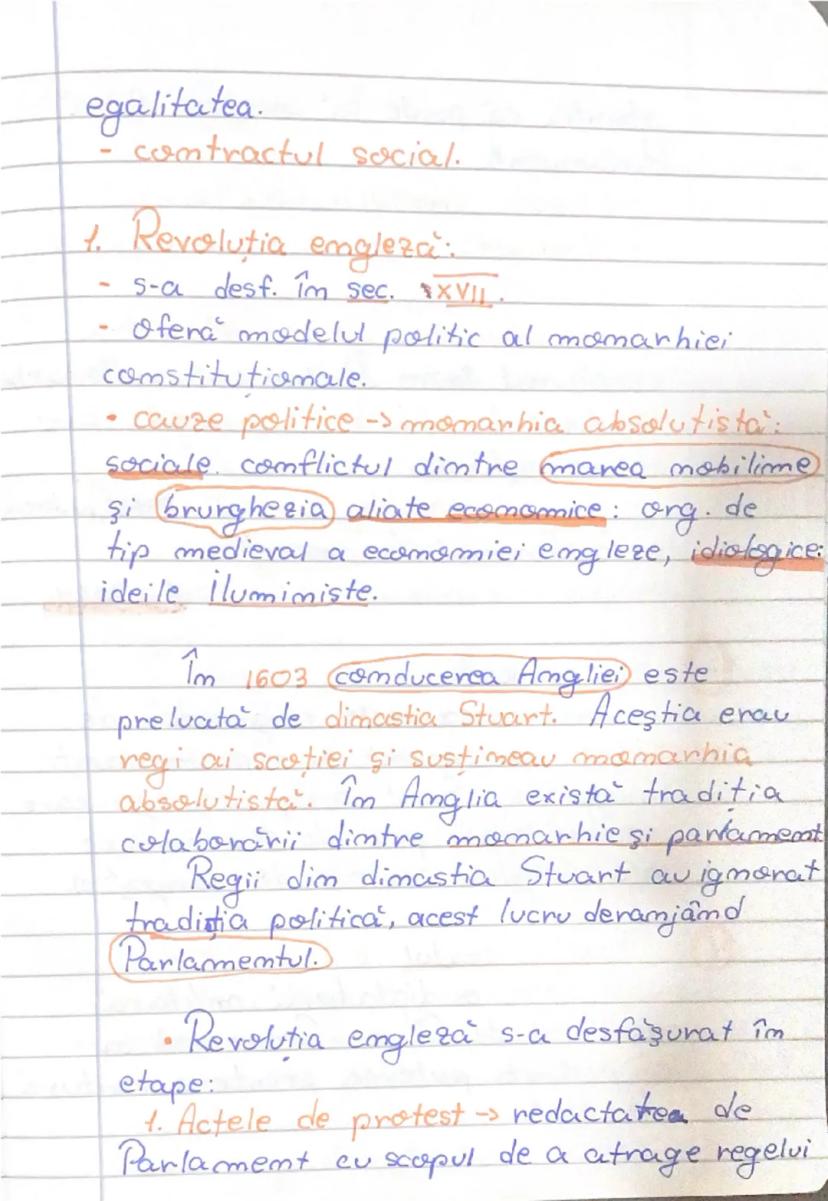 egalitatea.
- contractul social.
1. Revoluția engleză:
- s-a desf. în sec. XVII.
- oferă modelul politic al monarhiei
constituționale.
• cauze politice -> monarhia absolutistă:
sociale conflictul dintre marea nobilime
și brurghezia aliate economice: org. de
tip medieval a economiei engleze, idiologice:
ideile iluministe.
În 1603 conducerea Angliei este
preluată de dinastia Stuart. Aceștia erau
regi ai scoției și susțineau monarhia
absolutistă. În Anglia există tradiția
colaborării dintre monarhie și parlament
Regii din dinastia Stuart au ignorat
tradiția politică, acest lucru deranjând
Parlamentul.
• Revoluția engleză s-a desfășurat în
etape:
1. Actele de protest -> redactatea de
Parlament cu scopul de a atrage regelui